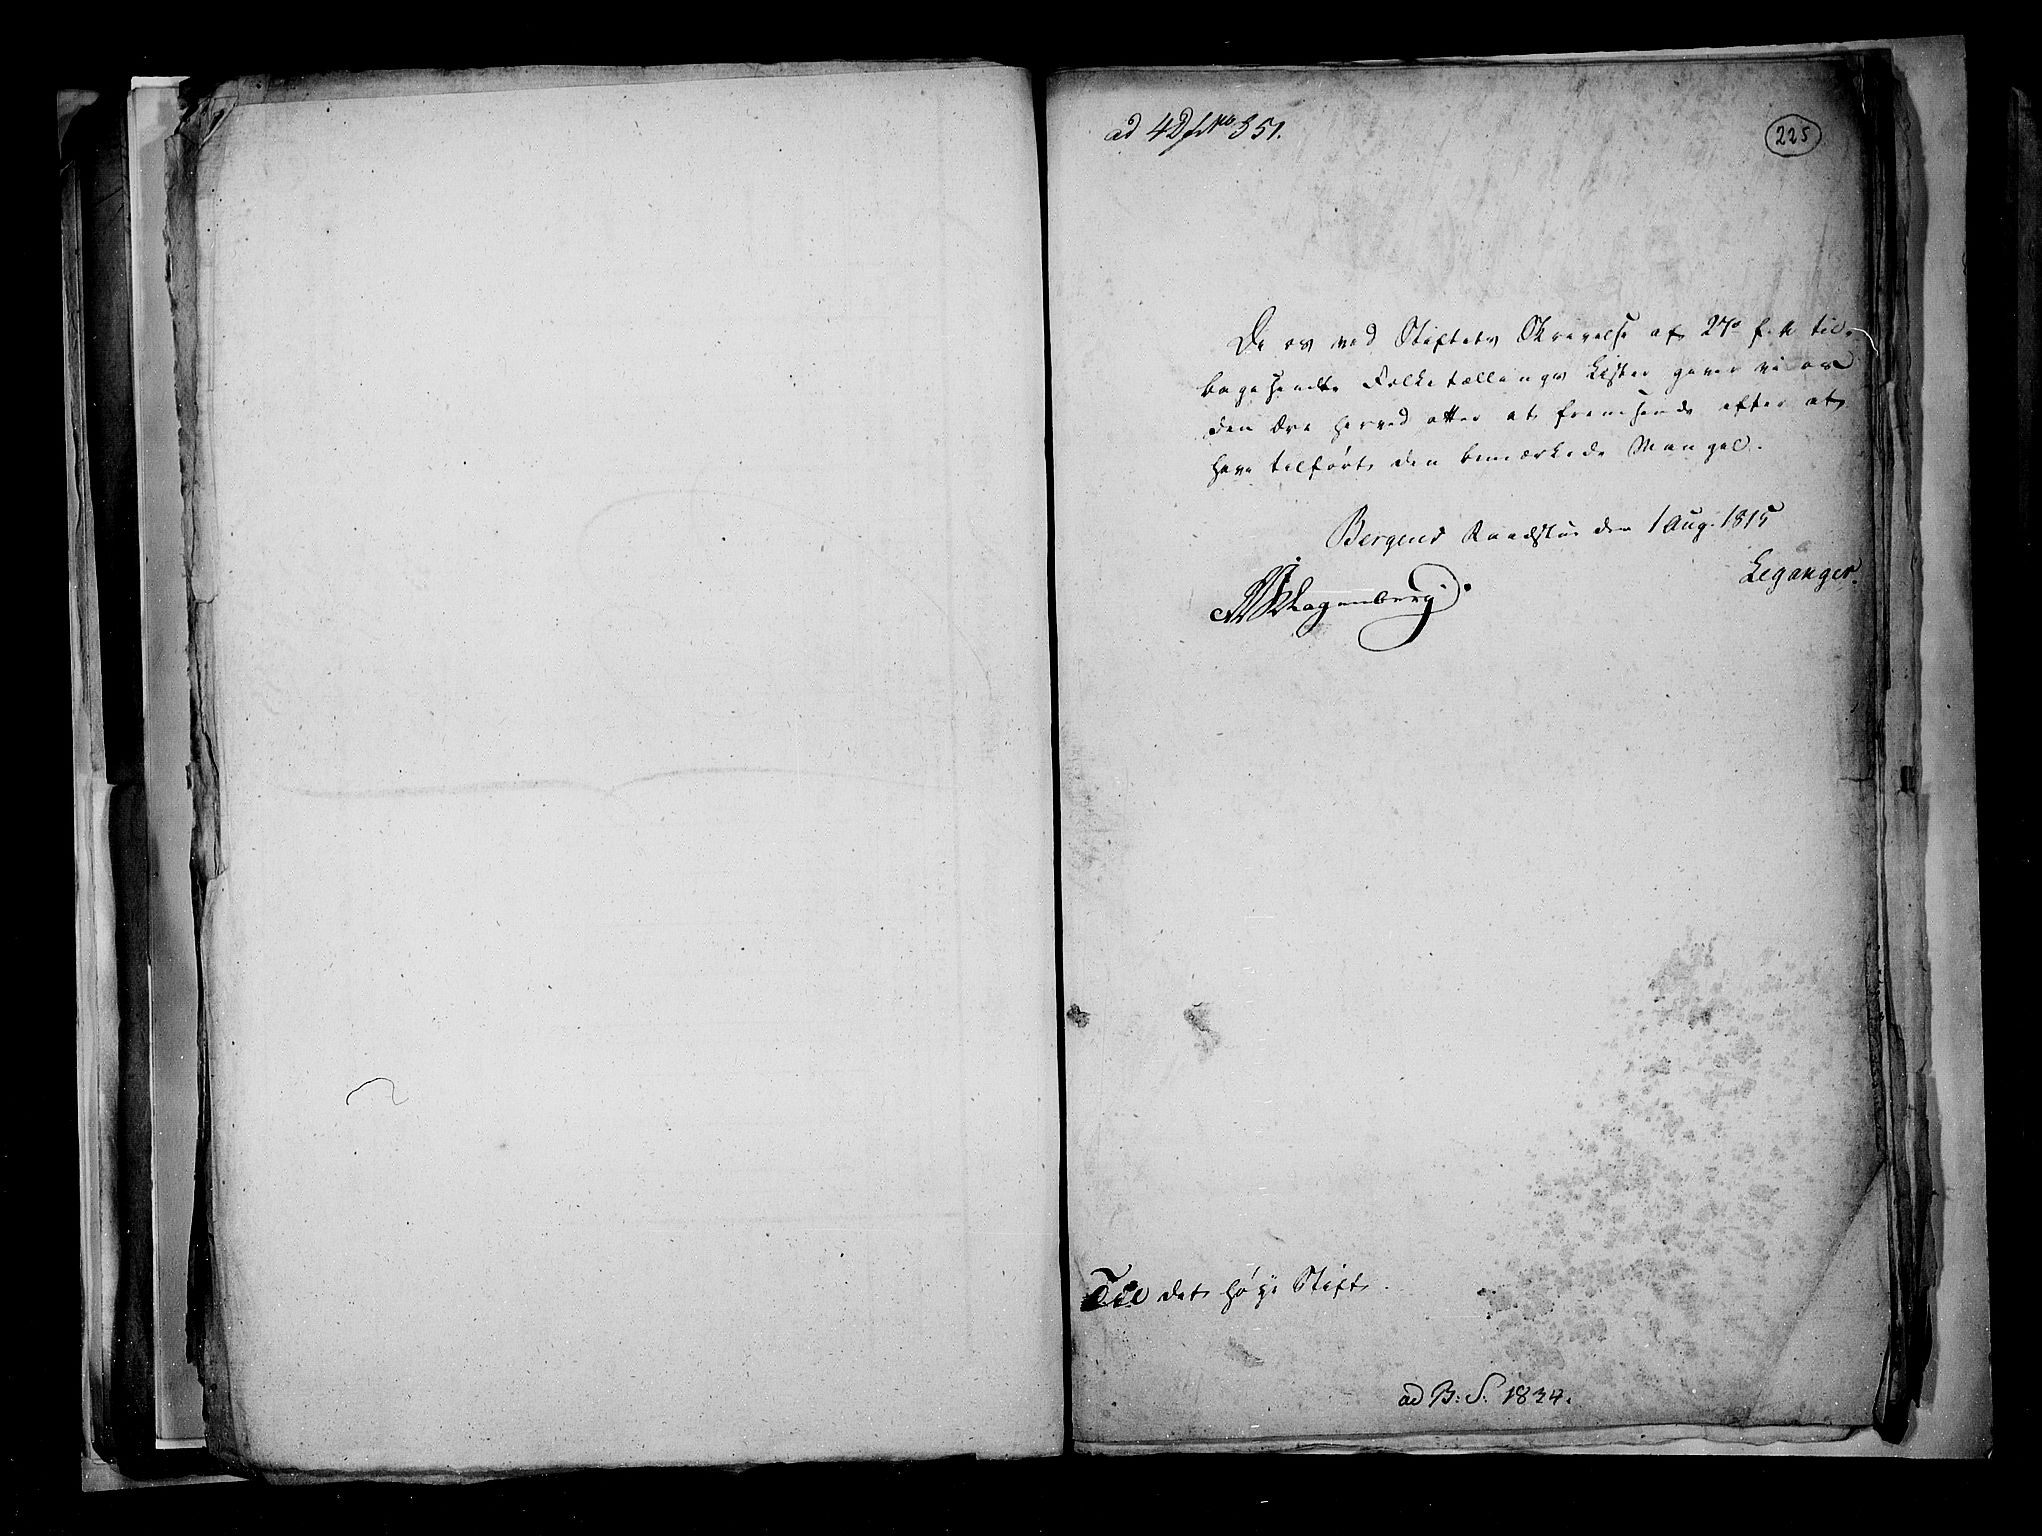 225
De os ved Stiftets Skrivelse af 27de f. M. til-
bagesendte Folketællings Lister giver vi os
den Ære herved atter at fremsende efter at
have tilført den bemærkede Mangel.
Bergens Raadstue den 1 Aug. 1815
Leganger.
Til det høye Stift.
ad B: S: 1834.